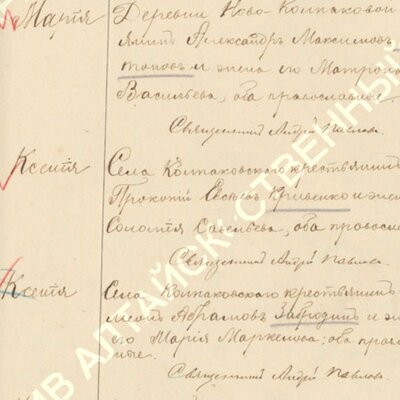 Марія
Деревни Ново-Колпаковой
янинъ Александръ Максимовъ
топовъ и жена его Матрона
Васильева, оба православные.
Священникъ Андрей Павловъ.
Ксенія
Села Колпаковскаго крестьянинъ
Прокопій Евсѣевъ Кривенко и жена
Соломія Савельева, оба правосла
Священникъ Андрей Павловъ.
Ксенія
Села Колпаковскаго крестьянинъ
Абрамовъ Забродинъ и же
его Марія Маркелова, оба право
ные.
Священникъ Андрей Павловъ.
ИВ АЛТАЙСК
СТВЕННЫЙ